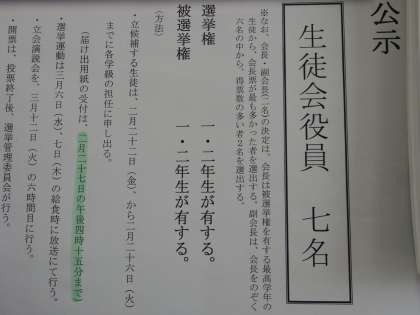 公示
生徒会役員　七名
※なお、会長、副会長（二名）の決定は、会長は被選挙権を有する最高学年の
生徒から、会長票が最も多かった者を選出する。副会長は、会長をのぞく
六名の中から、得票数の多い者２名を選出する。
選挙権　一・二年生が有する。
被選挙権　一・二年生が有する。
（方法）
・立候補する生徒は、二月二十二日（金）、から二月二十六日（火）
までに各学級の担任に申し出る。
（届け出用紙の受付は、二月二十七日の午後四時十五分まで）
・選挙運動は三月六日（水）、七日（木）の給食時に放送にて行う。
・立会演説会を、三月十二日（火）の六時間目に行う。
・開票は、投票終了後、選挙管理委員会が行う。